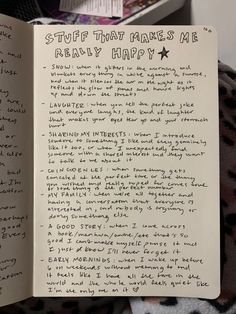 STUFF THAT MAKES ME
REALLY HAPPY ★
- SNOW: when it glitters in the morning and
blankets everything in white against a sunrise,
and when it silences the air in the night as it
reflects the glow of lamps and house lights
up and down the streets
- LAUGHTER: when you tell the perfect joke
and everyone laughs, the kind of laughter
that makes your eyes tear up and your stomach
hurt
- SHARING MY INTERESTS: when I introduce
someone to something I like and they genuinely
like it too, or when I unexpectedly find
someone with a shared interest and they want
to talk to me about it
- COINCIDENCES: when something gets
canceled at the perfect time or the thing
you wished and really hoped for comes true
or something is the perfect number
- MY FAMILY: when we're all together and
having a conversation that everyone is
interested in, and nobody is grumpy or
doing something else.
- A GOOD STORY: when I come across
a book/manhwa/anime/etc that's so
good I can't make myself pause it and
I just know I'll never forget it
- EARLY MORNINGS: when I wake up before
6 on weekends without meaning to and
it feels like I have all the time in the
world and the whole world feels quiet like
I'm the only one in it ♡